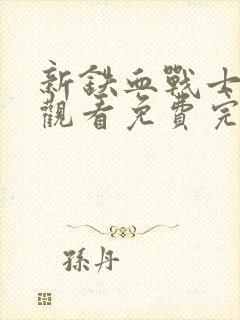 新鉄血戰士
觀看免費完
孫丹